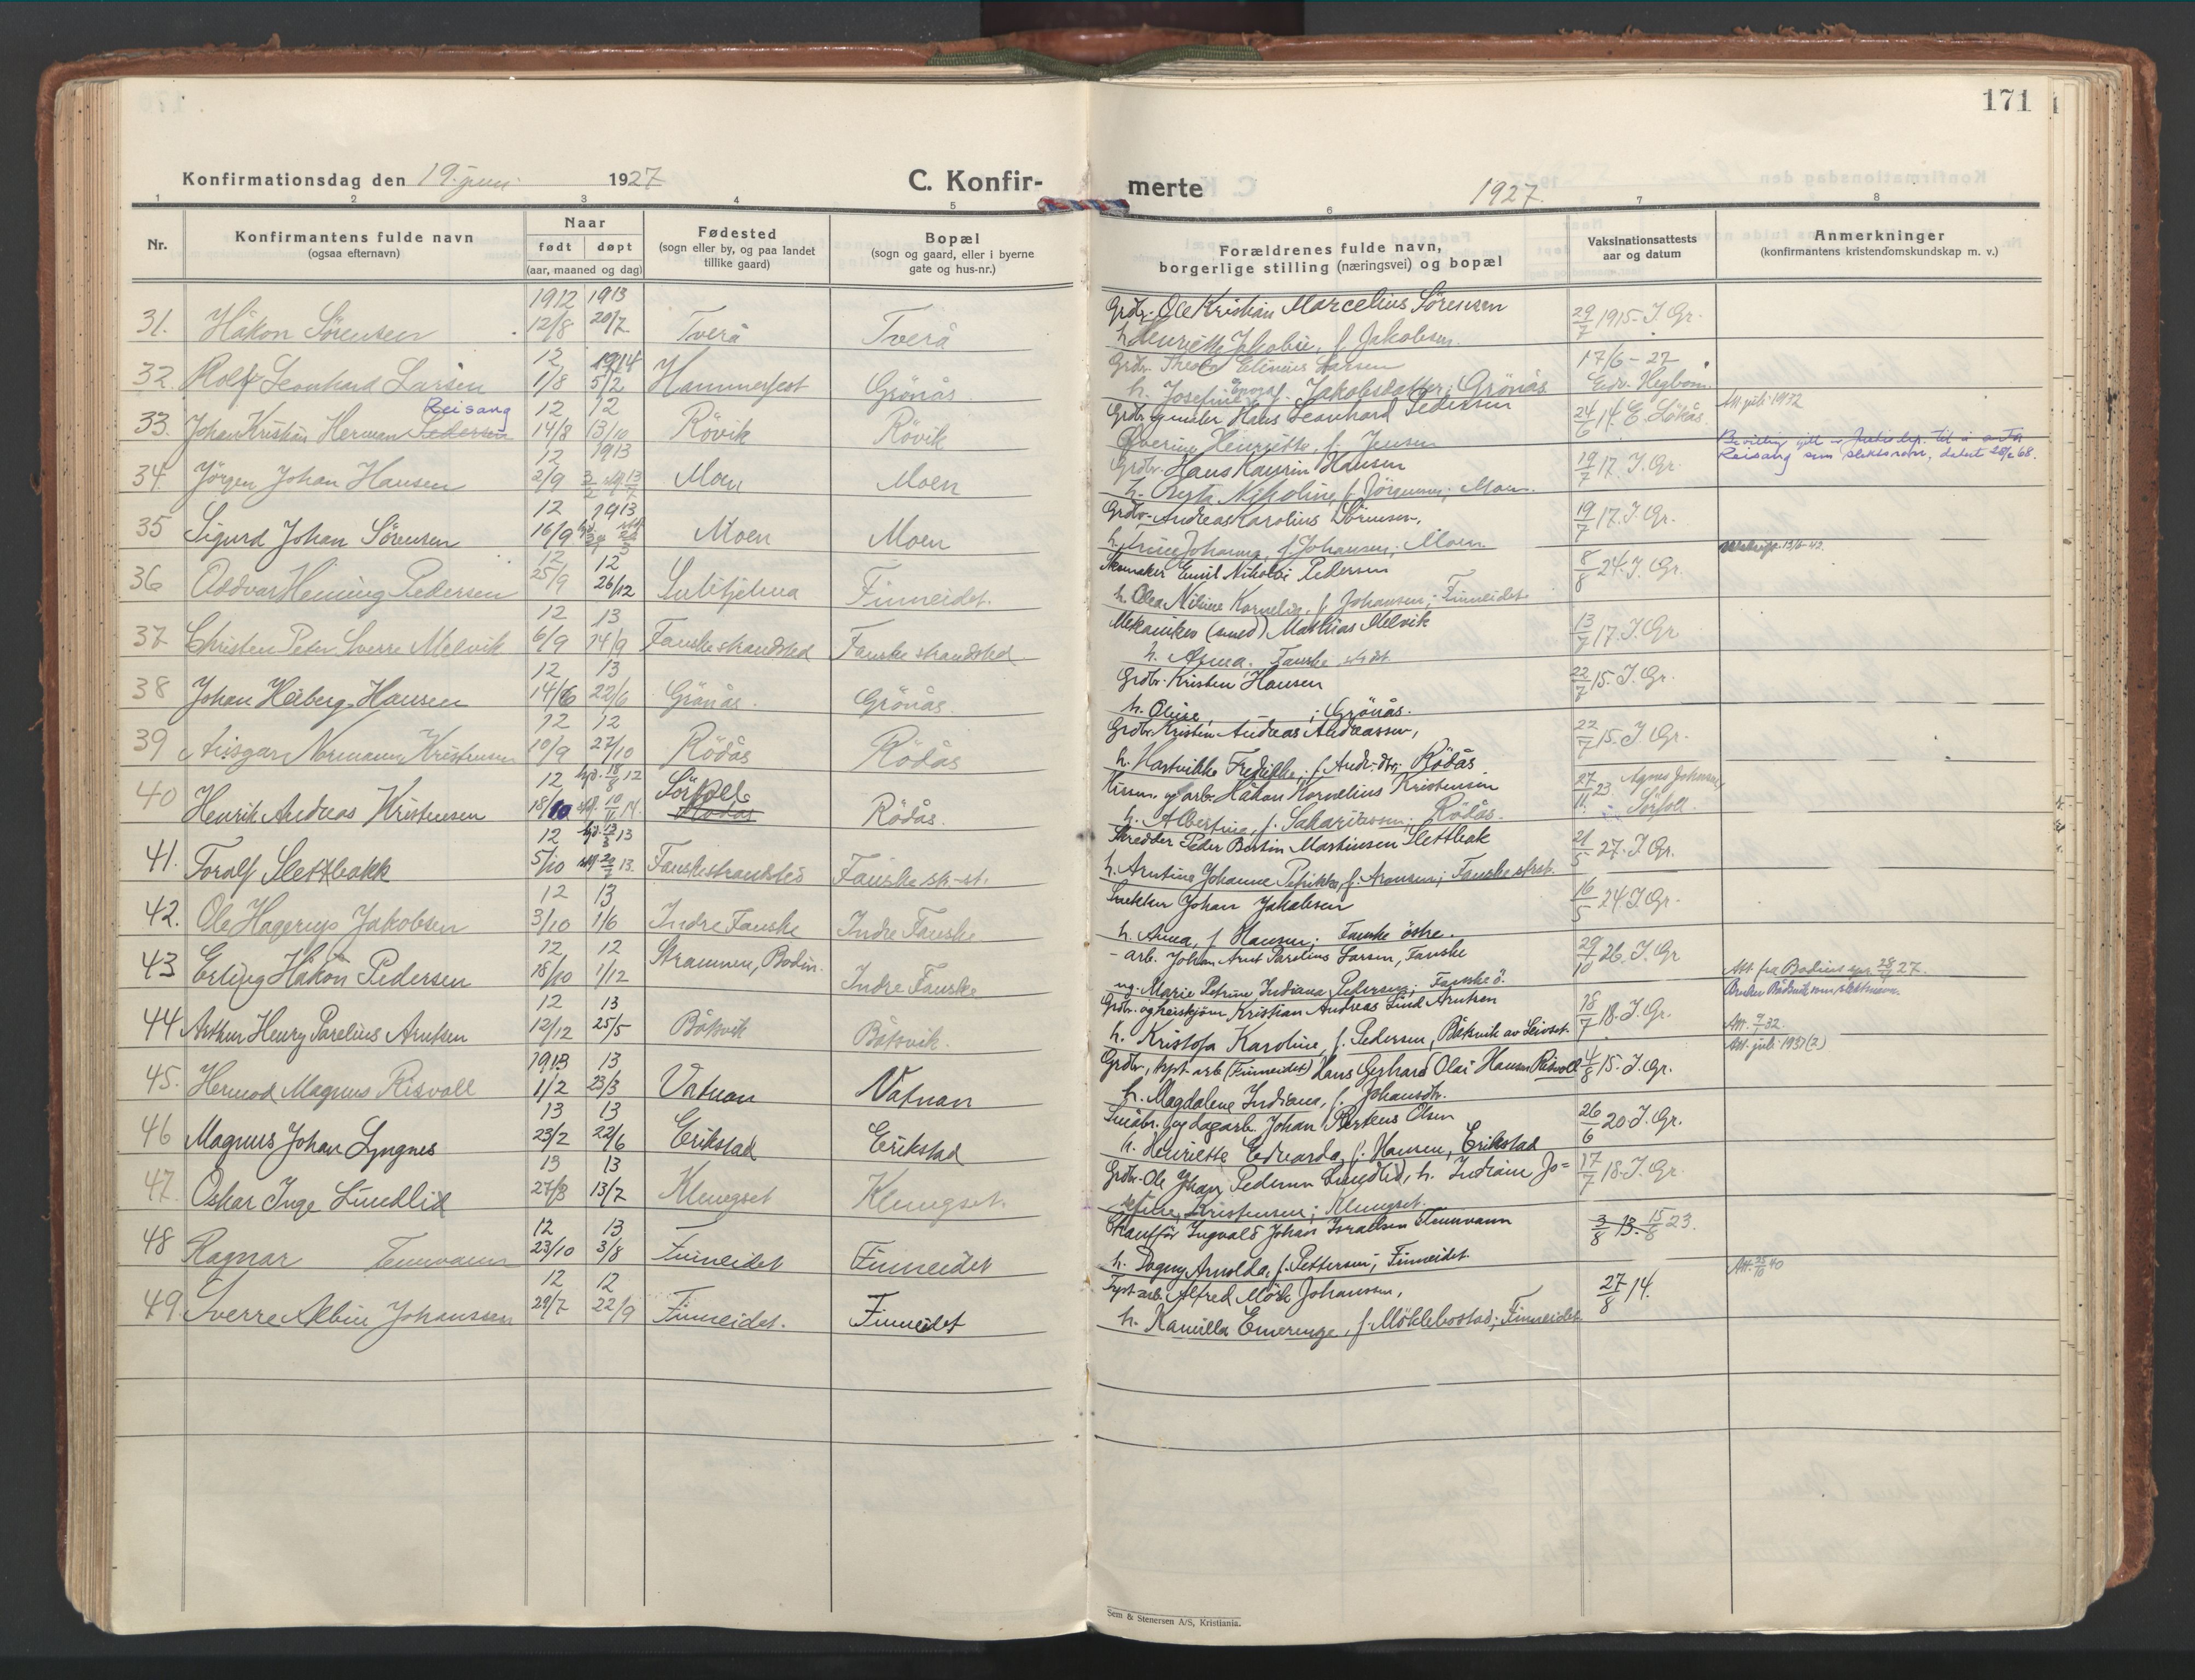 171
Konfirmationsdag den 19. juni 1927
C. Konfir-
merte
1927.
1 2 3 4 5 6 7 8
Nr.
Konfirmantens fulde navn
(ogsaa efternavn)
Naar
født døpt
(aar, maaned og dag)
Fødested
(sogn eller by, og paa landet
tillike gaard)
Bopæl
(sogn og gaard, eller i byerne
gate og hus-nr.)
Forældrenes fulde navn,
borgerlige stilling (næringsvei) og bopæl
Vaksinationsattests
aar og datum
Anmerkninger
(konfirmantens kristendomskundskap m. v.)
1912 1913
31. Håkon Sörensen 12/8 20/7 Tverå Tverå
Grdbr. Ole Kristian Marcelius Sörensen
h. Henriette Jakobie, f. Jakobsen.
29/7 1915. J. Gr.
12 1914
32. Rolf Leonhard Larsen 1/8 5/2 Hammerfest Grönås
Grdbr. Theodor Elenius Larsen
h. Josefine f. Jakobsdatter; Grönås
17/6-27
Edv. Hegbom.
Reisang
12 12
33. Johan Kristian Herman Pedersen 14/8 13/10 Rövik Rövik
Grdbr. Hans Leonhard Pedersen
Henriette, f. Jensen
24/6 14. E. Lökås.
Att. juli 1932
Reisang som slektsnavn, datert
12 1913
34. Jörgen Johan Hansen 2/9 Moen Moen
Grdbr. Hans Kaurin Hansen
h. Berta Nikoline, f. Jörgensen; Moen.
19/7 17. J. Gr.
12 1913
35 Sigurd Johan Sörensen 16/9 Moen Moen
Grdbr. Andreas Karolius Sörensen,
h. Trine Johanna, f. Johansen; Moen.
19/7 17. J. Gr.
12 12
36 Oddvar Heming Pedersen 25/9 26/12 Sulitjelma Finneidet.
Skomaker Emil Nikolai Pedersen
h. Olea Nikine Kornelia, f. Johansen; Finneidet
8/8 24. J. Gr.
12 13
37 Christen Peter Sverre Melvik 6/9 14/9 Fauske strandsted Fauske strandsted
Mekaniker (smed) Mathias Melvik
h. Anna. Fauske
13/7 17. J. Gr
12 13
38 Johan Heiberg Hansen 14/6 22/6 Grönås. Grönås.
Grdbr. Kristen Hansen
h. Oline, ; Grönås.
22/7 15. J. Gr.
12 12
39 Ansgar Normann Kristensen 10/9 27/10 Rödås Rödås
Grdbr. Kristen Andreas Andreassen,
h. Hartvikke Fredrikke, f. Andr.dtr; Rödås
22/7 15. J. Gr.
12 hjd. 18/8 12
40 Henrik Andreas Kristensen 18/10 Sörfold Rödås Rödås.
arb. Håkon Kornelius Kristensen
h. Albertine, f. Sakariassen; Rödås.
27/11 23. Agnes Johansen,
Sörfoll.
12 hjd. 12/3 13
41. Toralf Slettbakk 5/10 Fauskestrandsted Fauske str-st.
Skredder Peder Bertin Martinsen Slettbak
h. Arntine Johanne Petrikke, f. Aronsen; Fauske strst.
21/5 27. J. Gr.
12 13
42. Ole Hagerup Jakobsen 3/10 1/6 Indre Fauske Indre Fauske
Johan Jakobsen
h. Anna, f. Hansen; Fauske östre.
16/5 24 J. Gr.
12 12
43 Erling Håkon Pedersen 18/10 1/12 Straumen, Bodin. Indre Fauske
- arb. Johan Arnt Parelius Larsen, Fauske
ug. Marie Petrine Indiana Pedersen; Fauske ö.
29/10 26. J. Gr
Att. fra Bodin 28/4 27.
12 13
44 Arthur Henry Parelius Arntsen 12/12 25/5 Båtsvik Båtsvik.
Grdbr. og heiskjörer Kristian Andreas Lund Arntsen
h. Kristofa Karoline, f. Pedersen, Båtsvik av Leivset.
18/7 18. J. Gr.
Bruker Båtsvik som slektsnavn.
Att. 9/7 32.
1913 13
45. Hermod Magnus Risvoll 1/2 23/3 Vatnan Vatnan
Grdbr., typt. arb. (Finneidet) Hans Gerhard Olai Hansen Risvoll
h. Magdalene Indiana, f. Johansdtr.
4/8 15. J. Gr.
Att. juli 1937 (2)
13 13
46 Magnus Johan Lyngnes 23/2 22/6 Erikstad Erikstad
Småbr. og dagarb. Johan Berteus Olsen
h. Henriette Edvarda, f. Hansen, Erikstad
26/6 20. J. Gr.
13 13
47. Oskar Inge Lundlid 27/3 13/7 Klungset Klungset.
Grdbr. Ole Johan Pedersen Lundlid, h. Indiane Jo=
sefine, Kristensen; Klungset.
17/7 18. J. Gr.
12 13
48 Ragnar Finnvann 23/10 3/8 Finneidet Finneidet
Chaufför Ingvald Johan Israelsen Finnvann
h. Dagny Arnolda, f. Pettersen; Finneidet.
3/8 13. 15/6 23.
12 12
49. Sverre Albin Johanssen 29/7 22/9 Finneidet. Finneidet
Typt. arb. Alfred Mörk Johanssen,
h. Kamilla Emerense, f. Möklebostad; Finneidet.
27/8 14.
Att. 25/10 40
Sem & Stenersen A/S, Kristiania.